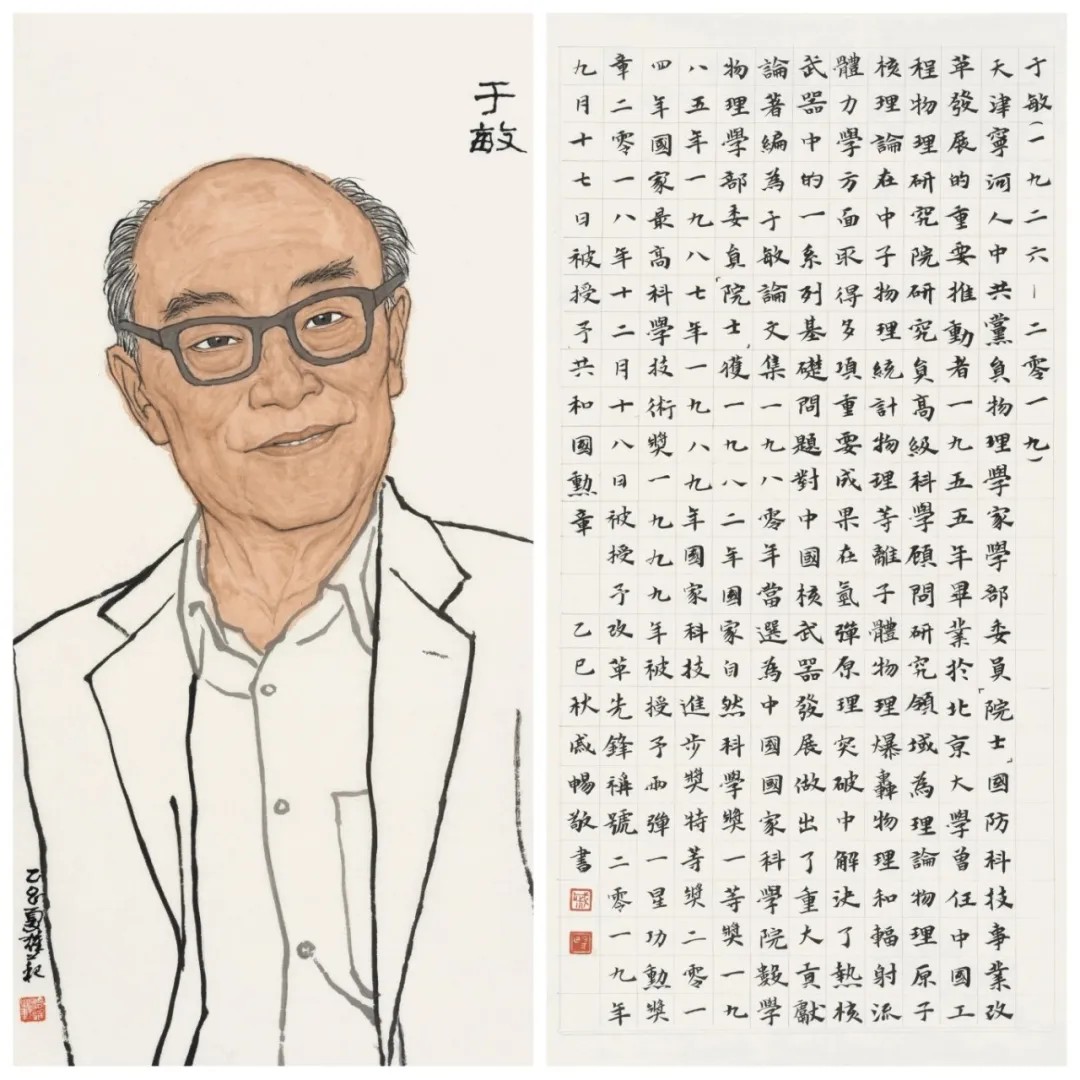 于敏
乙巳夏
于敏(一九二六—二零一九)
天津寧河人中共黨員物理學家學部委員「院士」國防科技事業改
革發展的重要推動者一九五五年畢業於北京大學曾任中國工
程物理研究院研究員高級科學顧問研究領域為理論物理原子
核理論在中子物理統計物理等離子體物理爆轟物理和輻射流
體力學方面取得多項重要成果在氫彈原理突破中解決了熱核
武器中的一系列基礎問題對中國核武器發展做出了重大貢獻
論著編為于敏論文集一九八零年當選為中國國家科學院數學
物理學部委員「院士」獲一九八二年國家自然科學獎一等獎一九
八五年一九八七年一九八九年國家科技進步獎特等獎二零一
四年國家最高科學技術獎一九九九年被授予兩彈一星功勳獎
章二零一八年十二月十八日被授予改革先鋒稱號二零一九年
九月十七日被授予共和國勳章 乙巳秋戚暢敬書